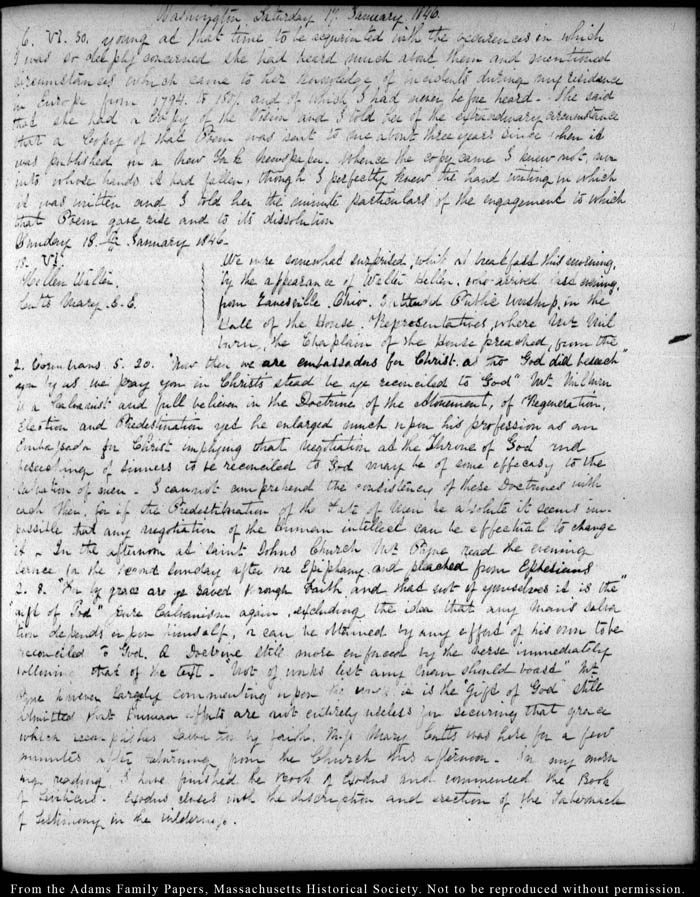 Washington, Saturday 17. January 1846.
6. VI. 30. young at that time to be acquainted with the occurrences in which
I was so deeply concerned she had heard much about them and mentioned
circumstances which came to her knowledge of incidents during my residence
in Europe from 1794. to 1801 and of which I had never before heard - She said
that she had a copy of the Poem and I told her of the extraordinary circumstance
that a Copy of that Poem was sent to me about three years since when it
was published in a New York Newspaper. Whence the copy came I knew not, nor
into whose hands it had fallen, though I perfectly knew the hand writing in which
it was written and I told her the minute particulars of the engagement to which
that Poem gave rise and to its dissolution
Sunday 18. January 1846.
VI.
Hellen Walter.
Cutts Mary E. E.
We were somewhat surprised, while at breakfast this morning,
by the appearance of Walter Hellen, who arrived last evening,
from Zanesville, Ohio. I attended Public worship, in the
Hall of the House, Representatives, where Mr Mil
burn, the Chaplain of the House preached, from the
2. Corinthians 5. 20. "Now then we are embassadors for Christ. as tho' God did beseech"
"you by us we pray you in Christs stead be ye reconciled to God" Mr. Milburn
is a Calvanist and full believer in the Doctrine of the Atonement, of Regeneration,
Election and Predestination yet he enlarged much upon his profession as an
Embassador for Christ implying that negotiation at the Throne of God and
beseeching of sinners to be reconciled to God may be of some efficacy to the
salvation of men. - I cannot comprehend the consistency of these Doctrines with
each other, for if the Predestination of the Fate of Men be absolute it seems im-
possible that any negotiation of the human intellect can be effectual to change
it. In the afternoon at Saint Johns Church Mr Pyne read the evening
service for the second Sunday after the Epiphany and preached from Ephesians
2. 8. "For by grace are ye saved through Faith, and that not of yourselves it is the"
"gift of God" Pure Calvanism again, excluding the idea that any mans salva
tion depends upon himself, or can be obtained by any effort of his own to be
reconciled to God. A Doctrine still more enforced by the verse immediately
following that of the text. - "Not of works lest any man should boast" Mr.
Pyne however largely commenting upon the words it is the "Gift of God" still
admitted that human efforts are not entirely useless for securing that grace
which accomplishes salvation by faith. Miss Mary Cutts was here for a few
minutes after returning from the Church this afternoon. In my morn
ings reading I have finished the Book of Exodus and commenced the Book
of Leviticus. Exodus closes with the discription and erection of the Tabernacle
of Testimony in the wilderness.
From the Adams Family Papers, Massachusetts Historical Society. Not to be reproduced without permission.